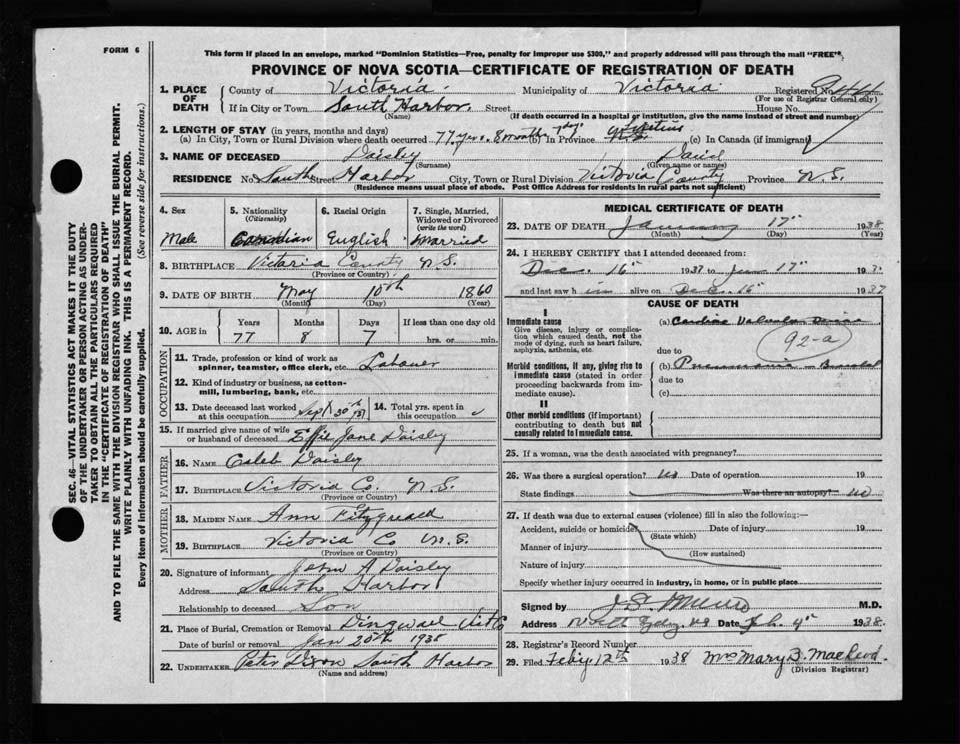 FORM 6
This form if placed in an envelope, marked "Dominion Statistics—Free, penalty for improper use $300," and properly addressed will pass through the mail "FREE".
PROVINCE OF NOVA SCOTIA—CERTIFICATE OF REGISTRATION OF DEATH
1. PLACE OF DEATH
County of Victoria Municipality of Victoria Registered No.
(For use of Registrar General only)
If in City or Town South Harbor Street House No.
(Name) (If death occurred in a hospital or institution, give the name instead of street and number)
2. LENGTH OF STAY (in years, months and days)
(a) In City, Town or Rural Division where death occurred 77 yrs. 8 months 7 days (b) In Province (c) In Canada (if immigrant)
3. NAME OF DECEASED Daisley David
(Surname) (Given name or names)
RESIDENCE No. South Street Harbor City, Town or Rural Division Victoria County Province N.S.
(Residence means usual place of abode. Post Office Address for residents in rural parts not sufficient)
4. Sex
Male
5. Nationality
(Citizenship)
Canadian
6. Racial Origin
English
7. Single, Married, Widowed or Divorced
(write the word)
Married
8. BIRTHPLACE Victoria County N.S.
(Province or Country)
9. DATE OF BIRTH May 10th 1860
(Month) (Day) (Year)
10. AGE in
Years Months Days If less than one day old
77 8 7 hrs. or min.
OCCUPATION
11. Trade, profession or kind of work as spinner, teamster, office clerk, etc. Labourer
12. Kind of industry or business, as cotton-mill, lumbering, bank, etc.
13. Date deceased last worked at this occupation Sept 30th
14. Total yrs. spent in this occupation
15. If married give name of wife or husband of deceased Effie Jane Daisley
FATHER
16. NAME Caleb Daisley
17. BIRTHPLACE Victoria Co. N.S.
(Province or Country)
MOTHER
18. MAIDEN NAME Ann Fitzgerald
19. BIRTHPLACE Victoria Co N.S.
(Province or Country)
20. Signature of informant John A Daisley
Address South Harbor
Relationship to deceased Son
21. Place of Burial, Cremation or Removal Dingwall Vict Co
Date of burial or removal Jan 20th 1938
22. UNDERTAKER Peter Dixon South Harbor
(Name and address)
MEDICAL CERTIFICATE OF DEATH
23. DATE OF DEATH January 17" 1938
(Month) (Day) (Year)
24. I HEREBY CERTIFY that I attended deceased from:
Dec. 16" 1937 to Jan 17" 193
and last saw him alive on Dec. 16" 1937
CAUSE OF DEATH
I
Immediate cause
Give disease, injury or complication which caused death, not the mode of dying, such as heart failure, asphyxia, asthenia, etc.
(a) Cardiac Valvular
92-a
due to
Morbid conditions, if any, giving rise to immediate cause (stated in order proceeding backwards from immediate cause).
(b) Pneumonia
due to
(c)
II
Other morbid conditions (if important) contributing to death but not causally related to immediate cause.
25. If a woman, was the death associated with pregnancy?
26. Was there a surgical operation? No Date of operation 19
State findings Was there an autopsy? no
27. If death was due to external causes (violence) fill in also the following:—
Accident, suicide or homicide Date of injury 19
(State which)
Manner of injury
(How sustained)
Nature of injury
Specify whether injury occurred in industry, in home, or in public place
Signed by M.D.
Address Date Feb. 4" 1938.
28. Registrar's Record Number
29. Filed Feby 12th 1938 Mrs Mary B. MacLeod
(Division Registrar)
SEC. 46—VITAL STATISTICS ACT MAKES IT THE DUTY
OF THE UNDERTAKER OR PERSON ACTING AS UNDERTAKER TO OBTAIN ALL THE PARTICULARS REQUIRED
IN THE "CERTIFICATE OF REGISTRATION OF DEATH"
AND TO FILE THE SAME WITH THE DIVISION REGISTRAR WHO SHALL ISSUE THE BURIAL PERMIT.
WRITE PLAINLY WITH UNFADING INK. THIS IS A PERMANENT RECORD.
Every item of information should be carefully supplied. (See reverse side for instructions.)